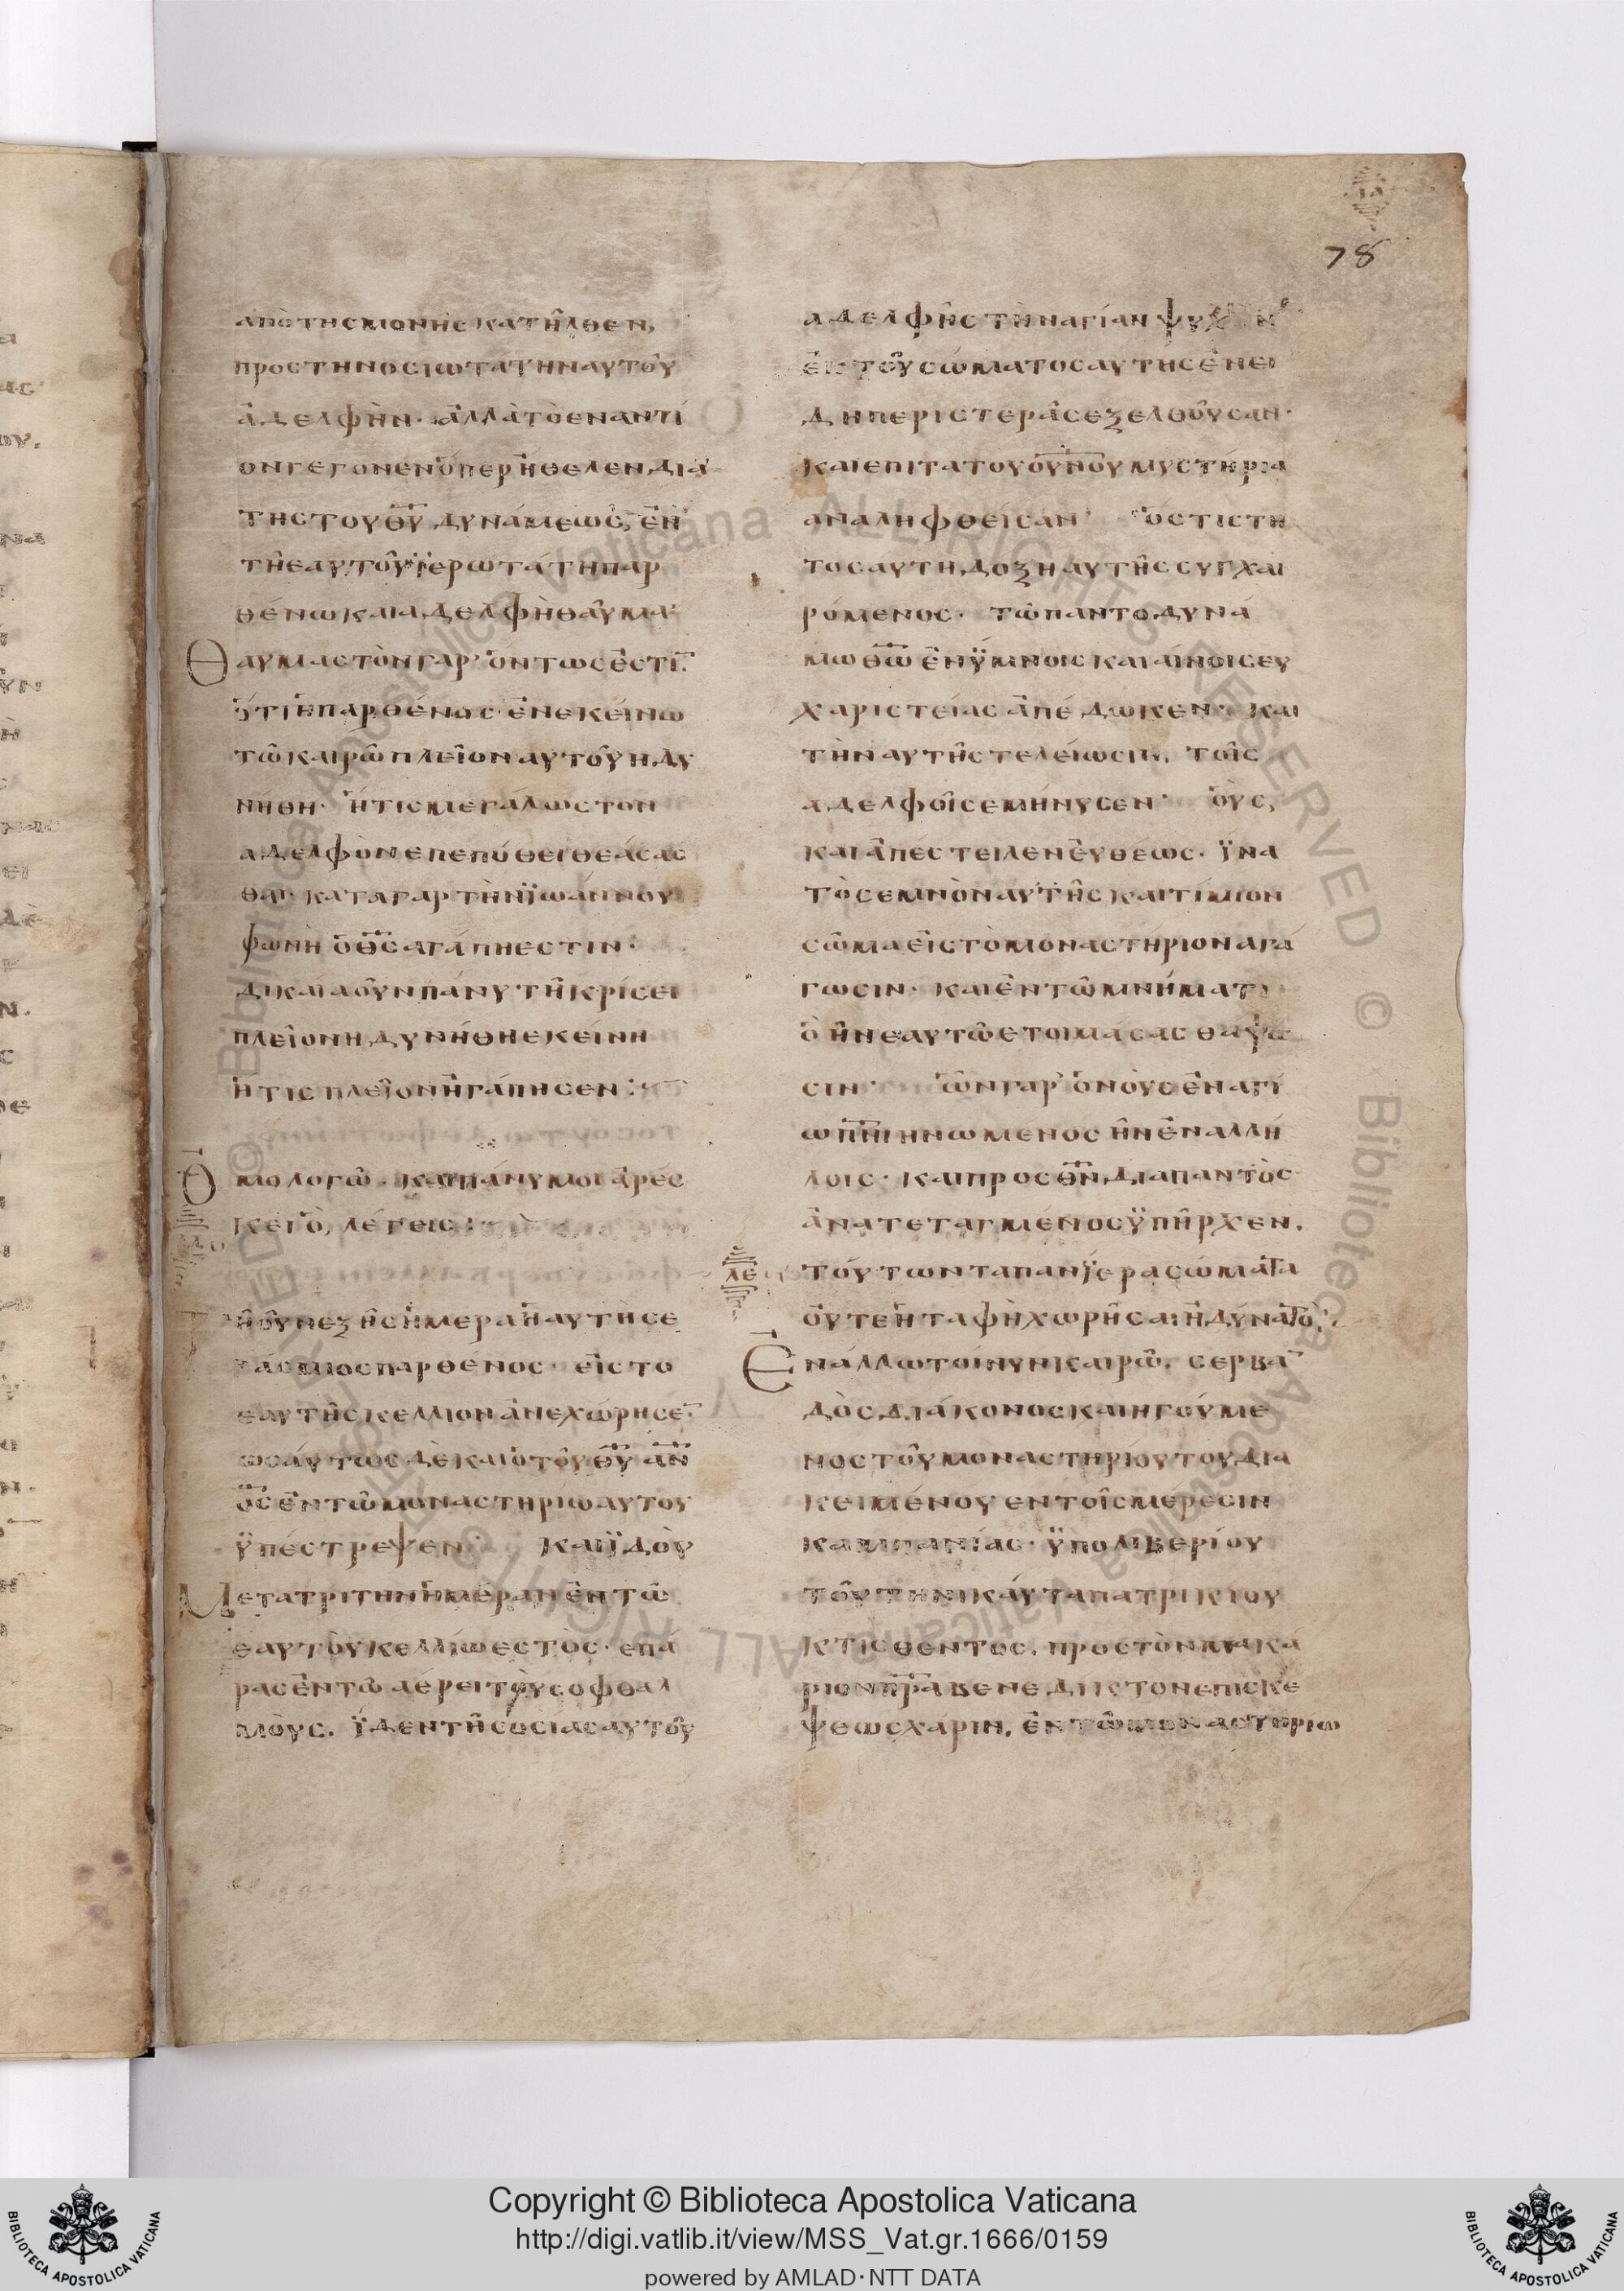 78
ἀπὸ τῆς μονῆς κατῆλθεν,
προς τὴν ὁσιωτάτην αὐτοῦ
ἀδελφὴν· ἀλλὰ τὸ ἐναντί
ον γέγονεν ὅπερ ἤθελεν, διὰ
τῆς τοῦ θ̅υ̅ δυνάμεως, ἐν
τῇ ἑαυτοῦ ϊερωτάτη παρ
θένω και ἀδελφῇ θαῦμα·
Θαυμαστὸν γὰρ ὄντως ἐστί̅.
ὅτι ἡ παρθένος ἐν ἐκείνω
τῶ καιρῶ πλεῖον αὐτοῦ ηδυ
νήθη· ἥτις μεγάλως τὸν
ἀδελφὸν ἐπεπόθει θεάσασ
θαι· κατα γαρ τὴν ϊωάννου
φωνὴ ὁ θ̅ς̅ αγάπη ἐστιν·
δικαία οὖν πάνυ τῆ κρίσει
πλεῖον ηδυνήθη ἐκείνη
ἥτις πλεῖον ἠγάπησεν:
Ὁμολογῶ. και πάνυ μοι ἀρέσ
κει ὃ, λέγεις:
Τῆ οὖν ἑξῆς ἡμέρα ἡ αὐτὴ σε
βάσμιος παρθένος· εἰς το
ἑαυτῆς κελλίον ἀνεχώρησε̅.
ὡσαύτως δὲ και ὁ τοῦ θ̅υ̅ α̅ν̅
ο̅ς̅ ἐν τῶ μοναστηρίω αὐτοῦ
ϋπέστρεψεν· και ϊδοὺ
Μετα τρίτην ἡμέραν ἐν τῶ
ἑαυτοῦ κελλίω ἑστὸς· ἐπά
ρας ἐν τῶ ἀέρει τοὺς ὀφθαλ
μοὺς. ϊδεν τῆς ὁσίας αὐτοῦ
ἀδελφῆς τὴν αγίαν ψυχὴν
ἐκ τοῦ σώματος αὐτῆς ἐν εἴ
δη περιστερᾶς ἐξελθοῦσαν·
και ἐπι τὰ τοῦ ο̅υ̅ν̅ο̅υ̅ μυστήρια
αναληφθεῖσαν· ὅστις τῆ
τοσαύτη δόξη αὐτῆς συγχαι
ρόμενος· τῶ παντοδυνά
μω θ̅ω̅ ἐν ϋμνοις και αἴνοις εὐ
χαριστείας ἀπέδωκεν· και
τὴν αὐτῆς τελείωσιν, τοῖς
ἀδελφοῖς ἐμήνυσεν· οὓς,
και ἀπέστειλεν ἐυθέως· ϊνα
τὸ σεμνὸν αὐτῆς και τίμιον
σῶμα εἰς τὸ μοναστήριον αγά
γωσιν· και ἐν τῶ μνήματι
ὃ ἦν ἑαυτῶ ἑτοιμάσας θάψω
σιν· ὧν γὰρ ὁ νοὺς ἐν αγί
ω π̅ν̅ι̅ ηνωμένος ἦν ἐν ἀλλή
λοις· και προς θ̅ν̅ διαπαντὸς
ἀνατεταγμένος ϋπῆρχεν.
τούτων τα πανϊερα σώματα
οὔτε ἡ ταφὴ χωρῆσαι ἠδύνατο,
λε
Ἐν ἄλλω τοίνυν καιρῶ. σερβα̅
δὸς διάκονος και ηγούμε
νος τοῦ μοναστηρίου του δια
κειμένου ἐν τοῖς μέρεσιν
καμπανίας· ϋπο λιβερίου
τοῦ τηνικαύτα πατρικίου
κτισθέντος. προς τὸν μακά
ριον π̅ρ̅α̅ βενέδικτον ἐπισκέ
ψεως χάριν, ἐν τῶ μοναστηρίω
Copyright © Biblioteca Apostolica Vaticana
http://digi.vatlib.it/view/MSS_Vat.gr.1666/0159
powered by AMLAD·NTT DATA
BIBLIOTECA APOSTOLICA VATICANA
BIBLIOTECA APOSTOLICA VATICANA